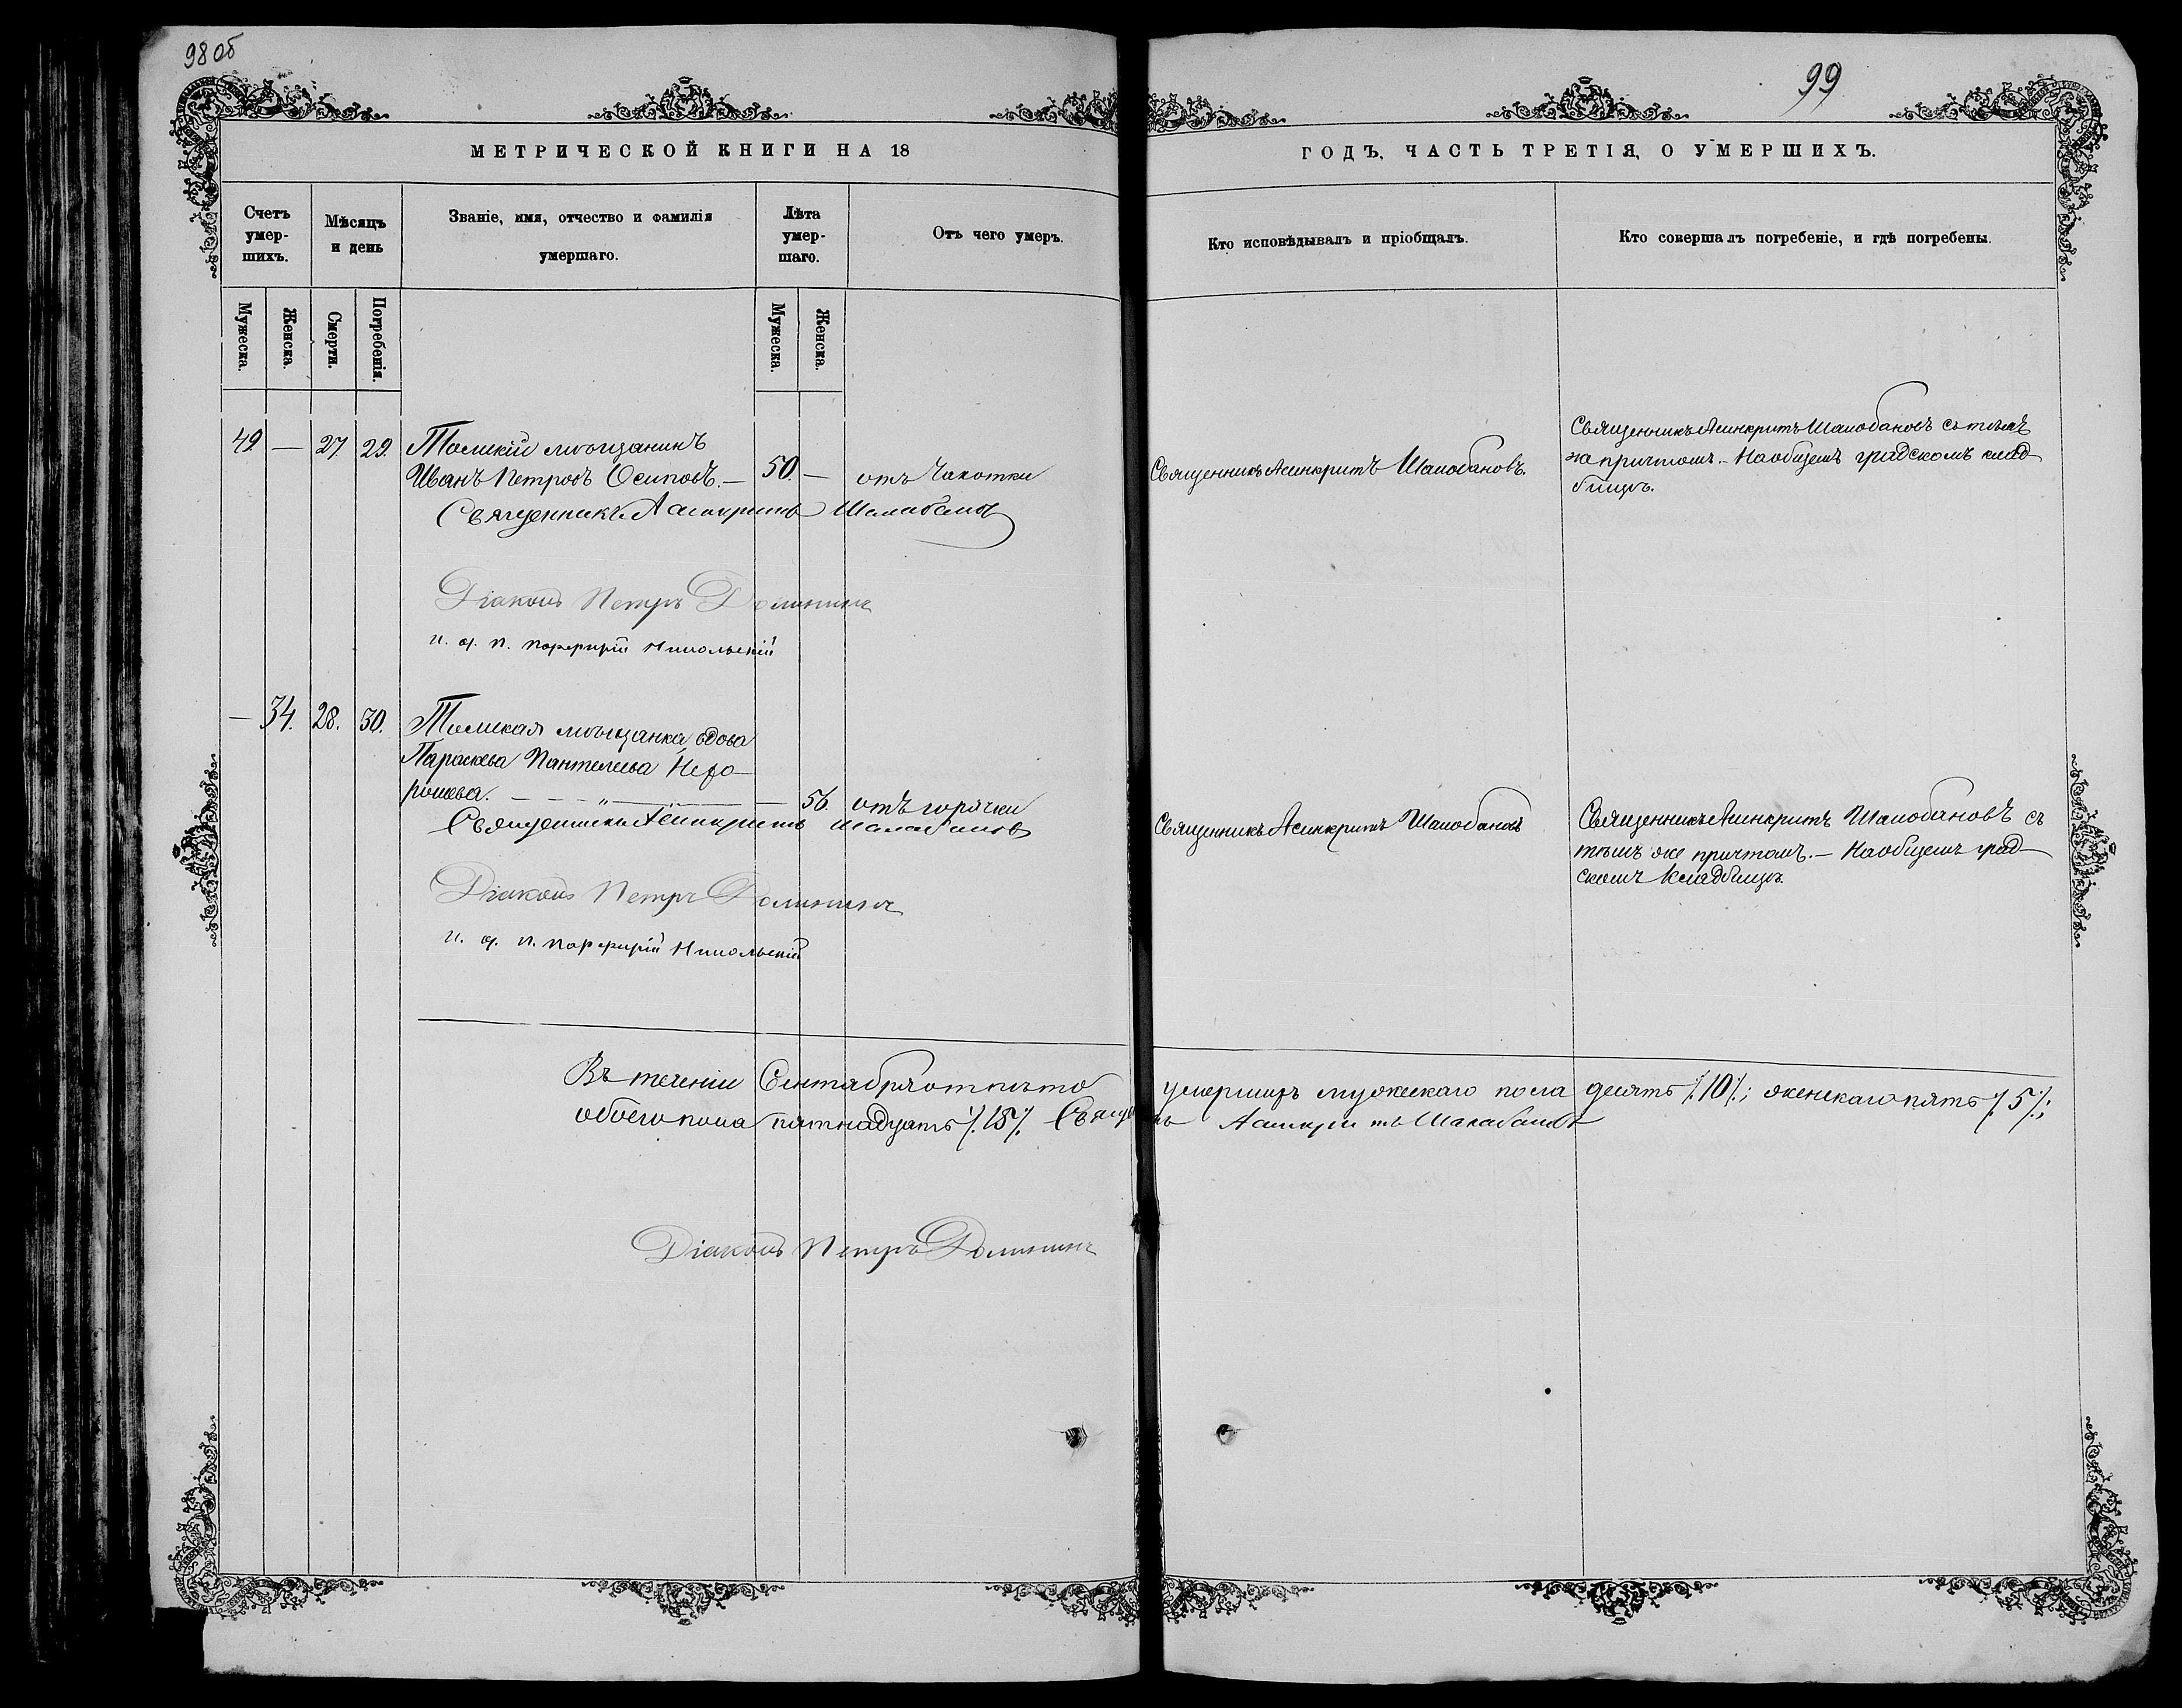 98 об
99
МЕТРИЧЕСКОЙ КНИГИ НА 18
ГОДЪ, ЧАСТЬ ТРЕТІЯ, О УМЕРШИХЪ.
Счетъ умер-шихъ.
Мѣсяцъ и день
Званіе, имя, отчество и фамилія
умершаго.
Лѣта умер-шаго.
Отъ чего умеръ.
Кто исповѣдывалъ и пріобщалъ.
Кто совершалъ погребеніе, и гдѣ погребены.
Мужеска.
Женска.
Смерти.
Погребенія.
Мужеска.
Женска.
49. — 27. 29. Томскій мѣщанинъ
Иванъ Петровъ Осиповъ. — 50. — отъ Чахотки
Священникъ Асинкритъ Шалобановъ.
Священникъ Асинкритъ Шалобановъ съ тѣмъ
же причтомъ. — На общемъ градскомъ клад-
бищѣ.
Священникъ Асинкритъ Шалабановъ
Діаконъ Петръ Долининъ
и. д. п. Порфирій Никольскій
— 34. 28. 30. Томская мѣщанка, вдова
Параскева Пантелеева Нехо-
рошева. — — — „ — — 56. отъ горячки
Священникъ Асинкритъ Шалобановъ
Священникъ Асинкритъ Шалобановъ съ
тѣмъ же причтомъ. — На общемъ град-
скомъ кладбищѣ.
Священникъ Асинкритъ Шалабановъ
Діаконъ Петръ Долининъ
и. д. п. Порфирій Никольскій
Въ теченіи Сентября отпѣто умершихъ мужескаго пола десять /.10./; женскаго пять /.5./;
обоего пола пятнадцать /.15./. Священникъ Асинкритъ Шалабановъ
Діаконъ Петръ Долининъ